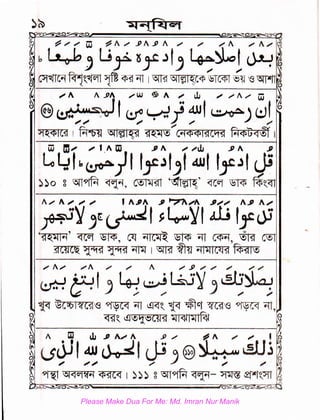 ১৯ মন্‌যিল
بَعْدَ اِصْلَاحِهَا وَادْعُوْهُ خَوْفًا وَّطَمَعًا ط
সেখানে বিশৃংখলা সৃষ্টি কর না। তাঁর আল্লাহকে ডাকো ভয় ও আশা
اِنَّ رَحْمَتَ اللهِ قَرِيْبٌ مِّنَ الْمُحْسِنِيْنَ
সহকারে। নিশ্চয় আল্লাহর রহমত নেককারদের নিকটবর্তী।
قُلِ ادْعُوا اللهَ اَوِ ادْعُوا الرَّحْمٰنَ ط اَيًّا مَّا
১১০ ঃ আপনি বলুন, তোমরা 'আল্লাহ' বলে ডাক কিংবা
تَدْعُوْا فَلَهُ الْاَسْمَآءُ الْحُسْنٰى ج وَلَا تَجْهَرْ
'রহমান' বলে ডাক, যে নামেই ডাক না কেন, তাঁর তো
রয়েছে সুন্দর সুন্দর নাম। আর স্বীয় নামাযের কিরাত
بِصَلَاتِكَ وَلَا تُخَافِتْ بِهَا وَابْتَغِ بَيْنَ
খুব উচ্চৈঃস্বরেও পড়বে না এবং খুব ক্ষীণ স্বরেও পড়বে না,
বরং এতদুভয়ের মাঝামাঝি
ذٰلِكَ سَبِيْلًا وَقُلِ الْحَمْدُ لِلّٰهِ الَّذِيْ
পন্থা অবলম্বন করবে। ১১১ ঃ আপনি বলুন- সমস্ত প্রশংসা
Please Make Dua For Me: Md. Imran Nur Manik